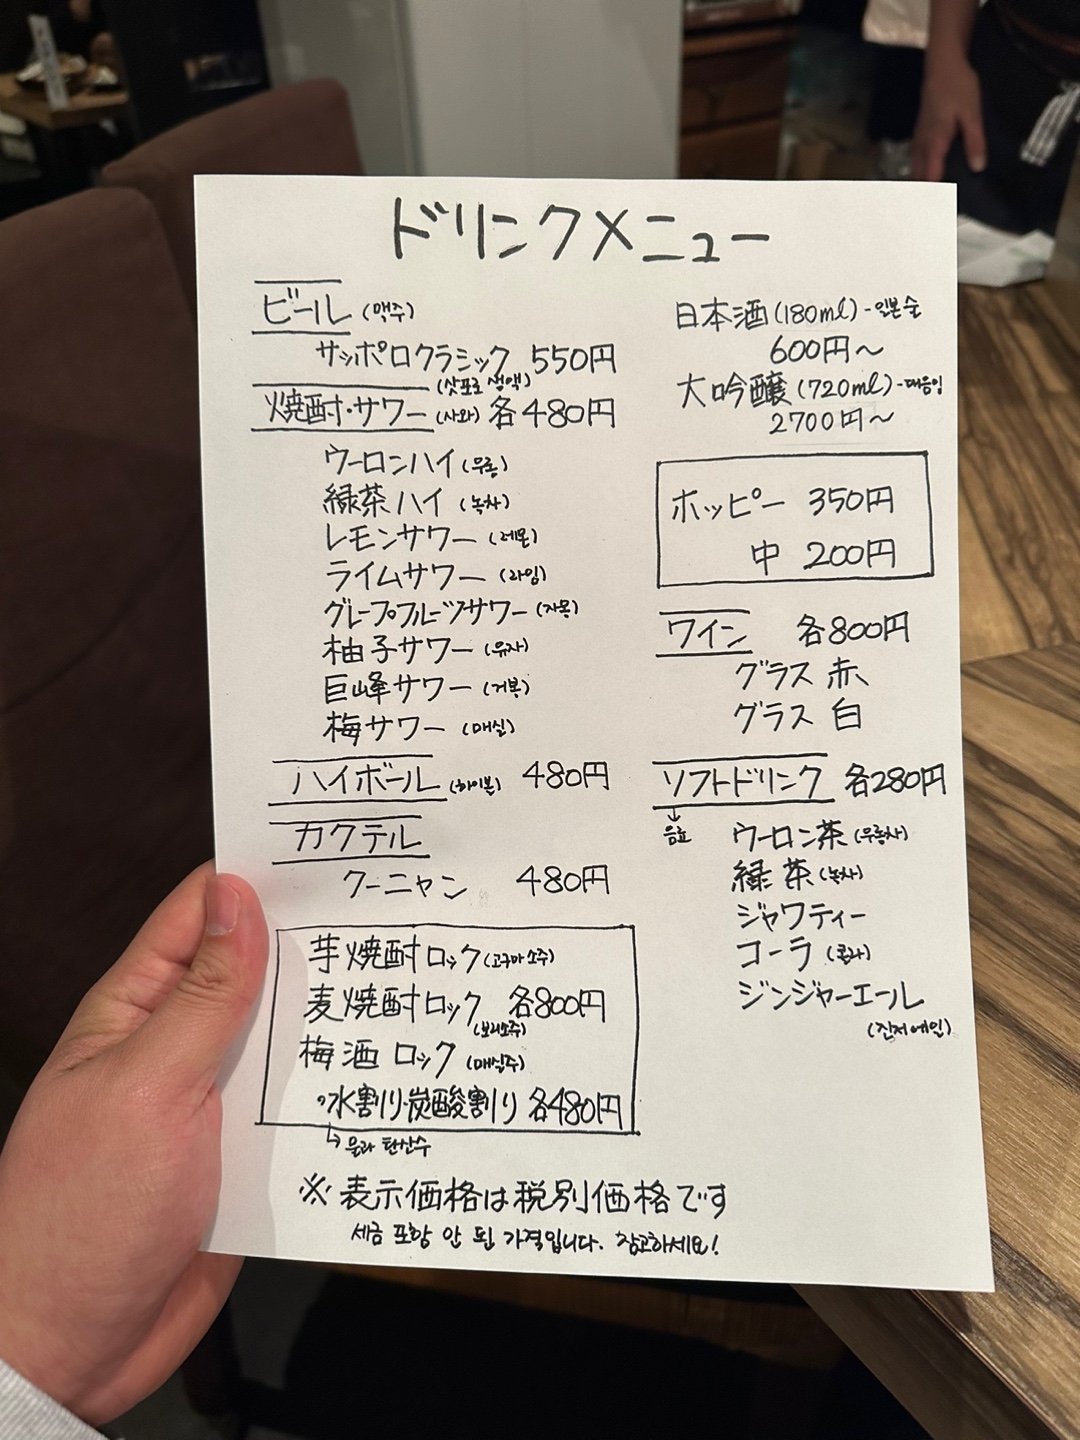 ドリンクメニュー
ビール (맥주)
サッポロクラシック 550円
(삿포로 생맥)
焼酎・サワー (사와) 各480円
ウーロンハイ (우롱)
緑茶ハイ (녹차)
レモンサワー (레몬)
ライムサワー (라임)
グレープフルーツサワー (자몽)
柚子サワー (유자)
巨峰サワー (거봉)
梅サワー (매실)
ハイボール (하이볼) 480円
カクテル
クーニャン 480円
芋焼酎ロック (고구마 소주)
麦焼酎ロック 各800円
(보리소주)
梅酒ロック (매실주)
・水割り・炭酸割り 各480円
↳ 물과 탄산수
日本酒 (180ml) - 일본술
600円～
大吟醸 (720ml) - 대음임
2700円～
ホッピー 350円
中 200円
ワイン 各800円
グラス 赤
グラス 白
ソフトドリンク 各280円
↓
음료
ウーロン茶 (우롱차)
緑茶 (녹차)
ジャワティー
コーラ (콜라)
ジンジャーエール
(진저에일)
※ 表示価格は税別価格です
세금 포함 안 된 가격입니다. 참고하세요!